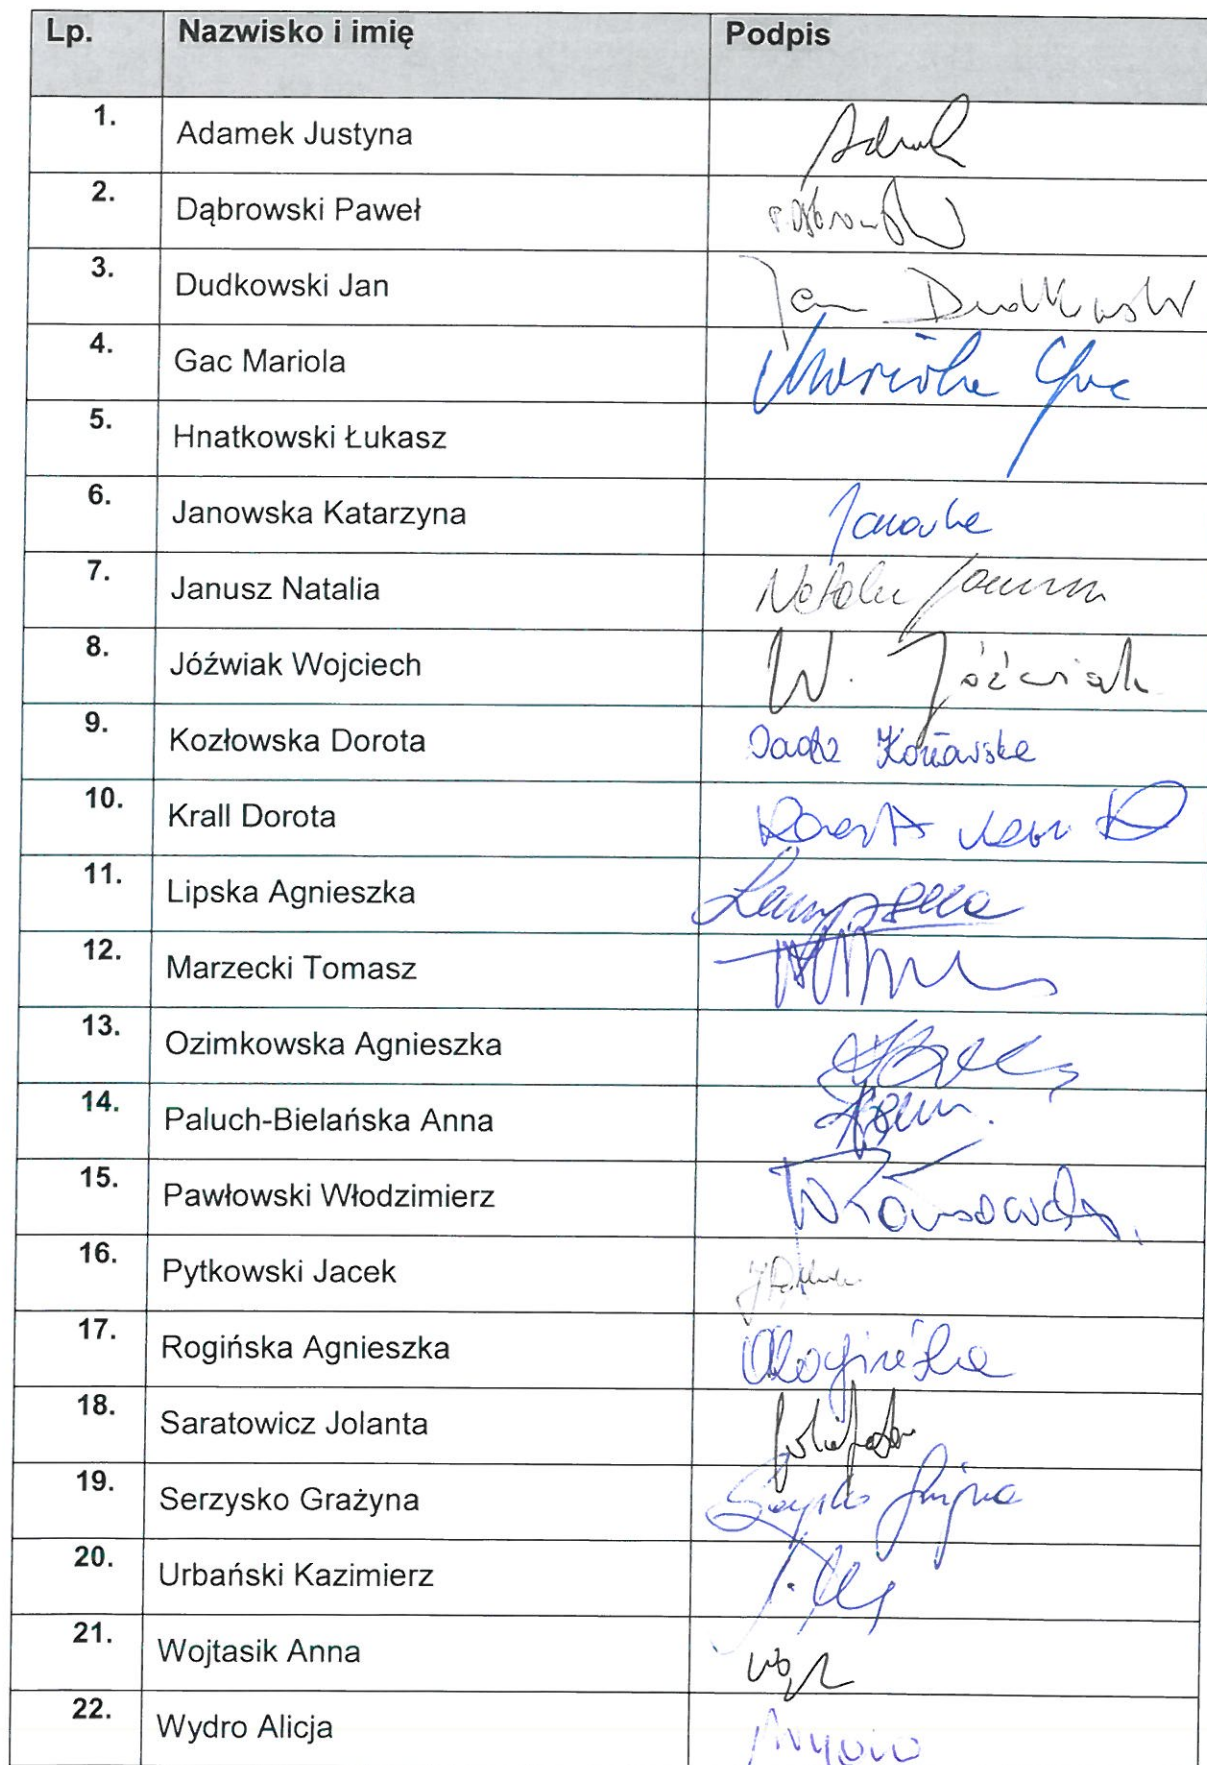 Lp. Nazwisko i imię Podpis
1. Adamek Justyna
2. Dąbrowski Paweł
3. Dudkowski Jan Jan Dudkowski
4. Gac Mariola Mariola Gac
5. Hnatkowski Łukasz
6. Janowska Katarzyna Janowska
7. Janusz Natalia Natalia Janusz
8. Jóźwiak Wojciech W. Jóźwiak
9. Kozłowska Dorota Kozłowska
10. Krall Dorota
11. Lipska Agnieszka
12. Marzecki Tomasz
13. Ozimkowska Agnieszka
14. Paluch-Bielańska Anna
15. Pawłowski Włodzimierz
16. Pytkowski Jacek
17. Rogińska Agnieszka ARogińska
18. Saratowicz Jolanta
19. Serzysko Grażyna Serzysko Grażyna
20. Urbański Kazimierz
21. Wojtasik Anna
22. Wydro Alicja AWydro